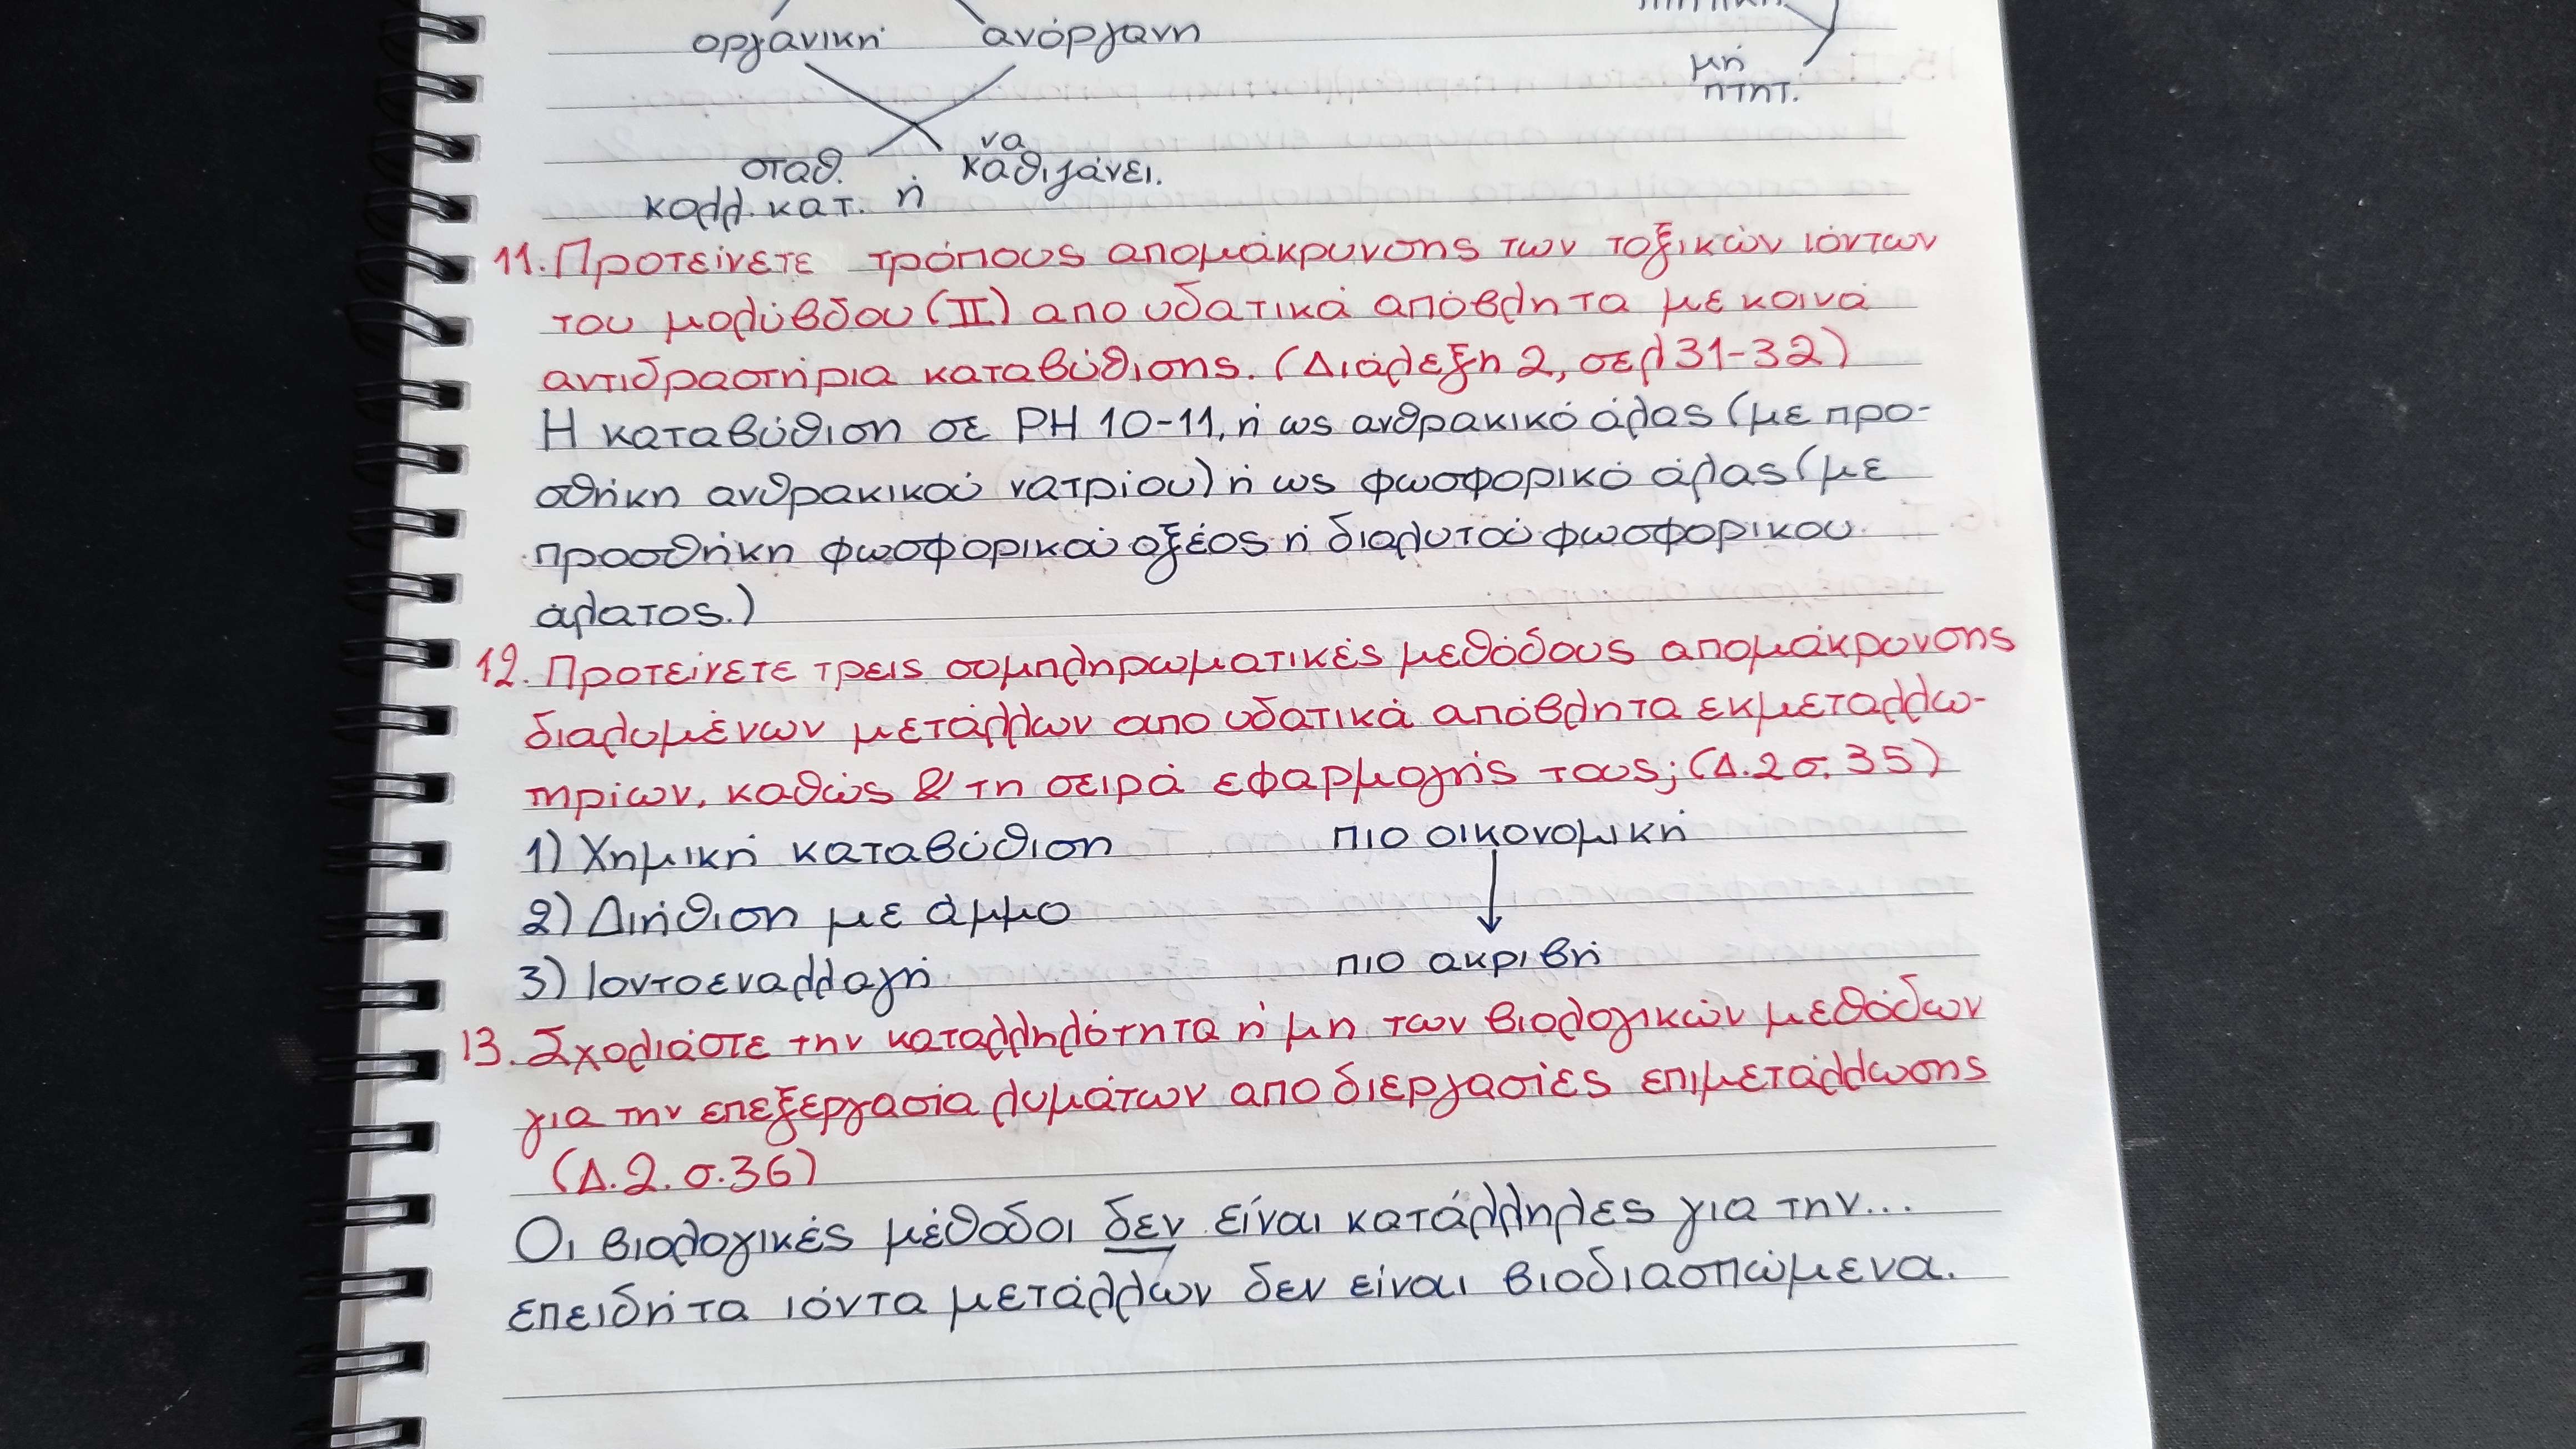 οργανική ανόργανη
μή
πτητ.
να
σταθ. καθιζάνει.
κολλ. κατ. ή
11. Προτείνετε τρόπους απομάκρυνσης των τοξικών ιόντων
του μολύβδου (ΙΙ) απο υδατικά απόβλητα με κοινά
αντιδραστήρια καταβύθισης. (Διάλεξη 2, σελ 31-32)
Η καταβύθιση σε PH 10-11, ή ως ανθρακικό άλας (με προ-
σθήκη ανθρακικού νατρίου) ή ως φωσφορικό άλας (με
προσθήκη φωσφορικού οξέος ή διαλυτού φωσφορικου
άλατος.)
12. Προτείνετε τρεις συμπληρωματικές μεθόδους απομάκρυνσης
διαλυμένων μετάλλων απο υδατικά απόβλητα εκμεταλλω-
τηρίων, καθώς & τη σειρά εφαρμογής τους; (Δ.2 σ. 35)
1) Χημική καταβύθιση πιο οικονομική
2) Διήθιση με άμμο
3) Ιοντοεναλλαγή πιο ακριβή
13. Σχολιάστε την καταλληλότητα ή μη των βιολογικών μεθόδων
για την επεξεργασία λυμάτων απο διεργασίες επιμετάλλωσης
(Δ.2. σ.36)
Οι βιολογικές μέθοδοι δεν είναι κατάλληλες για την...
επειδή τα ιόντα μετάλλων δεν είναι βιοδιασπώμενα.